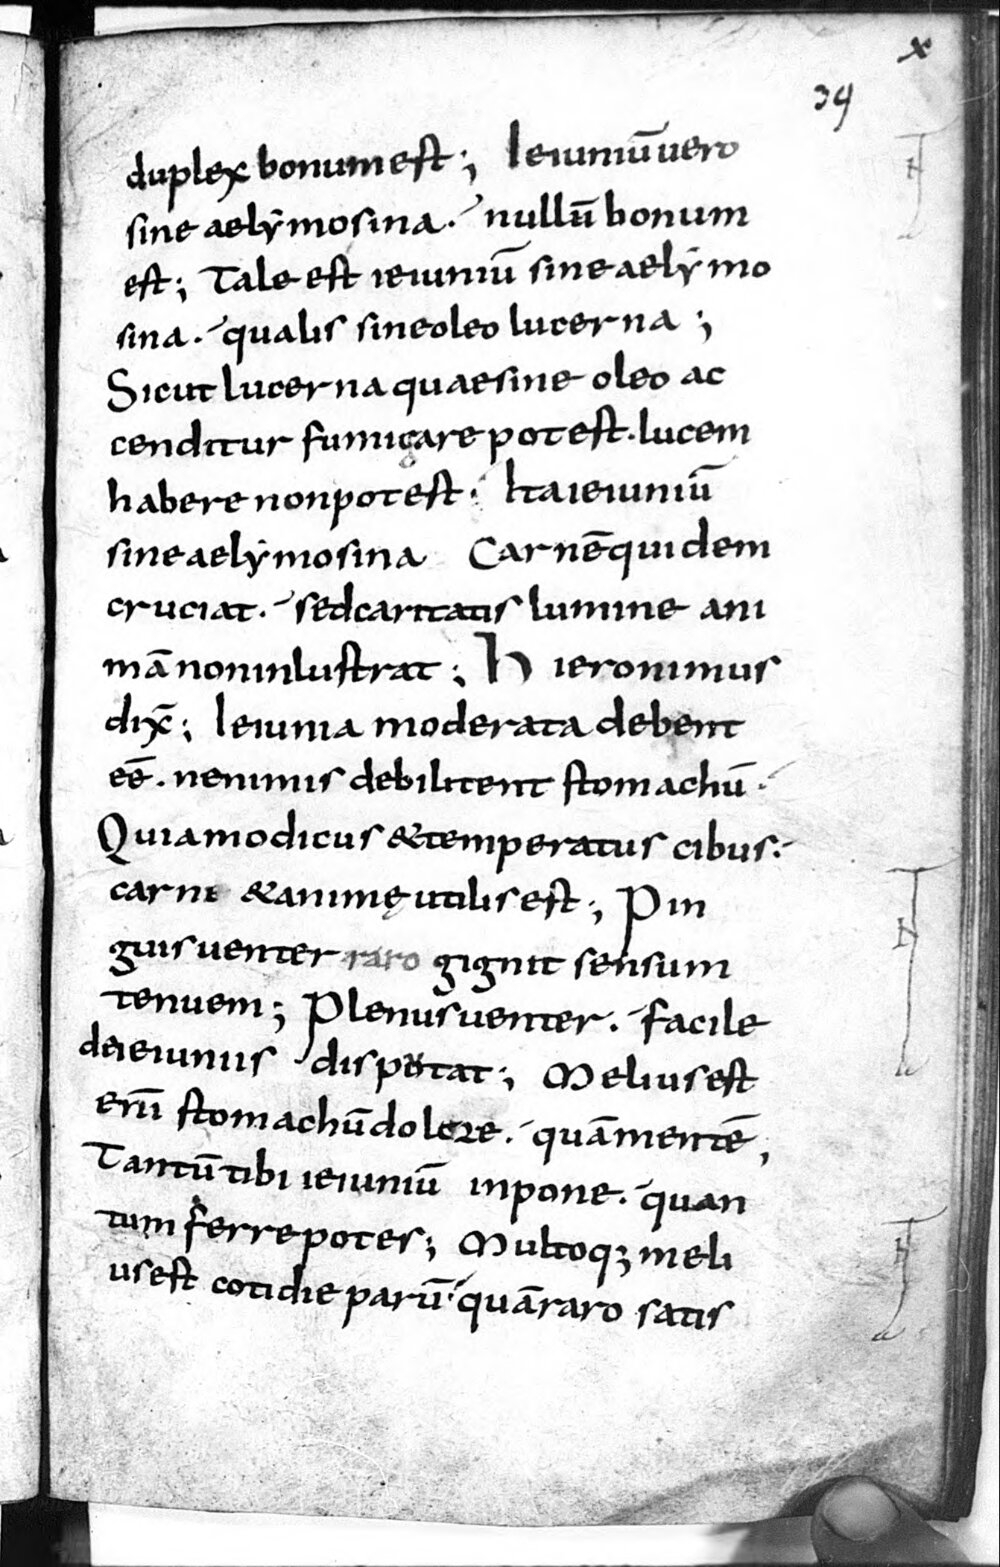 x
34
duplex bonum est; Ieiuniū uero
sine aelẏmosina. nullū bonum
est; Tale est ieiuniū sine aelẏmo
sina. qualis sine oleo lucerna;
Sicut lucerna quae sine oleo ac
cenditur fumigare potest. lucem
habere non potest. Ita ieiuniū
sine aelẏmosina Carnē quidem
cruciat. sed caritatis lumine ani
mā non inlustrat; Hieronimus
dix̄; Ieiunia moderata debent
eē. ne nimis debilitent stomachū.
Quia modicus & temperatus cibus.
carni & animę utilis est; Pin
guis uenter raro gignit sensum
tenuem; Plenus uenter. facile
de ieiuniis disputat; Melius est
enī stomachū dolere. quā mentē;
Tantū tibi ieiuniū inpone. quan
tum ferre potes; Multoqꝫ meli
us est cotidie parū. quā raro satis